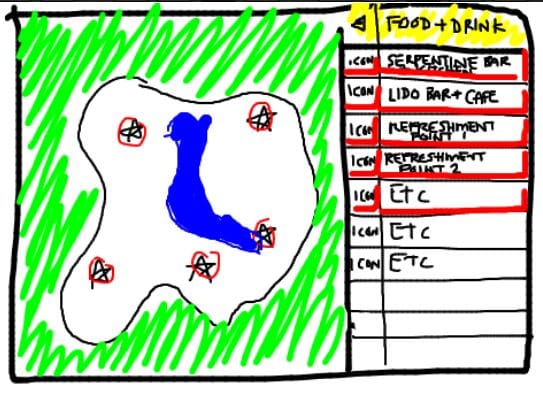 FOOD + DRINK
ICON SERPENTINE BAR
ICON LIDO BAR + CAFE
ICON REFRESHMENT
POINT 1
ICON REFRESHMENT
POINT 2
ICON ETC
ICON ETC
ICON ETC